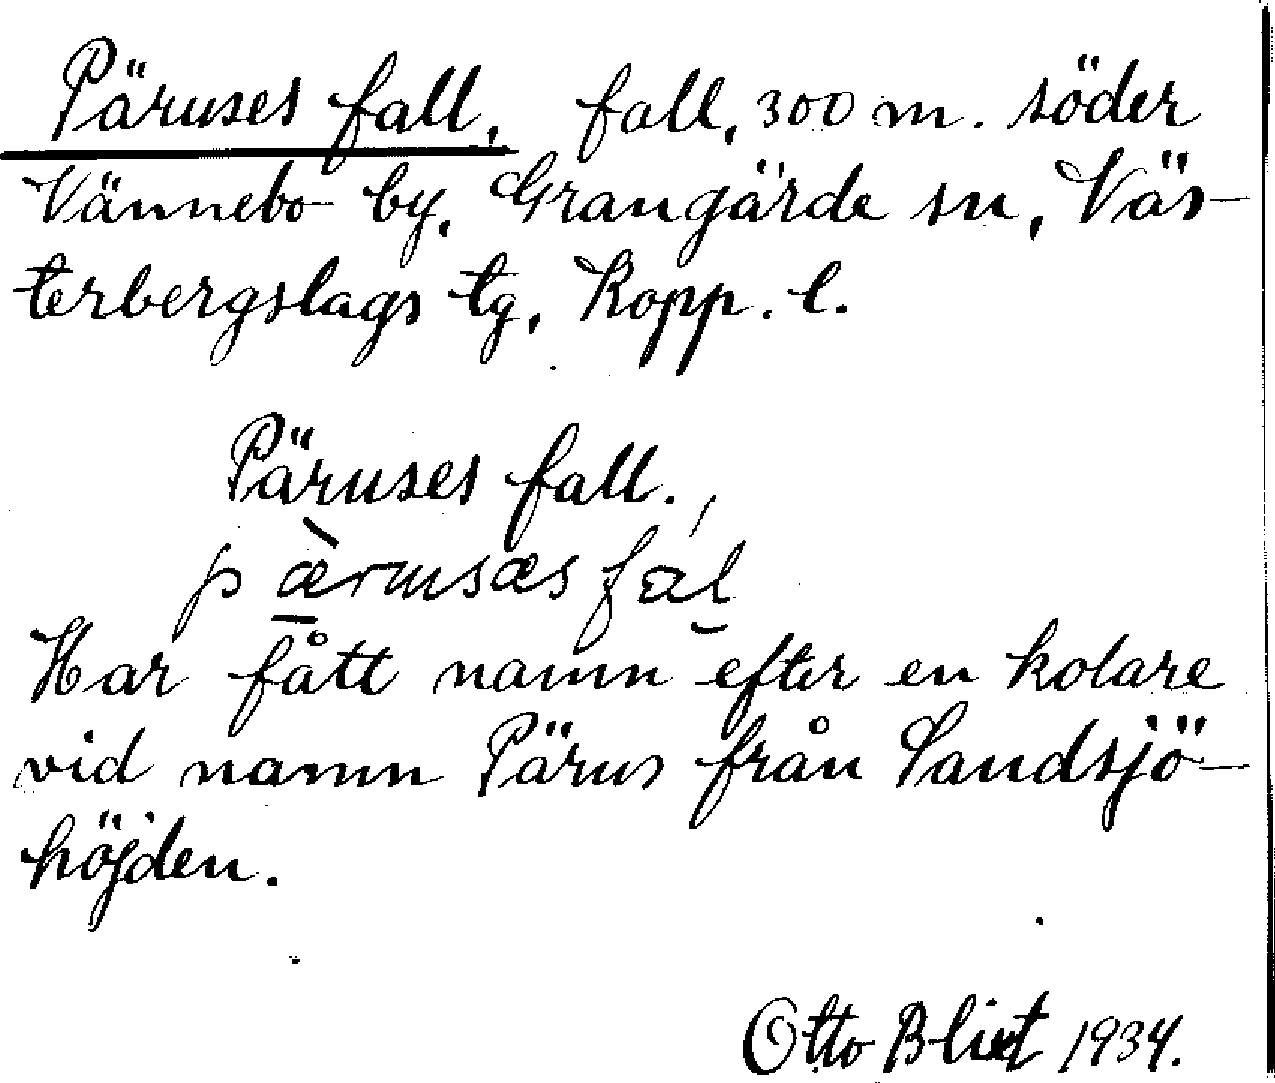 Päruses fall, fall, 300 m. söder
Vännebo by, Grangärde sn, Väs-
terbergslags tg, Kopp. l.
Päruses fall.
Har fått namn efter en kolare
vid namn Pärus från Sandsjö-
höjden.
Otto Blixt 1934.